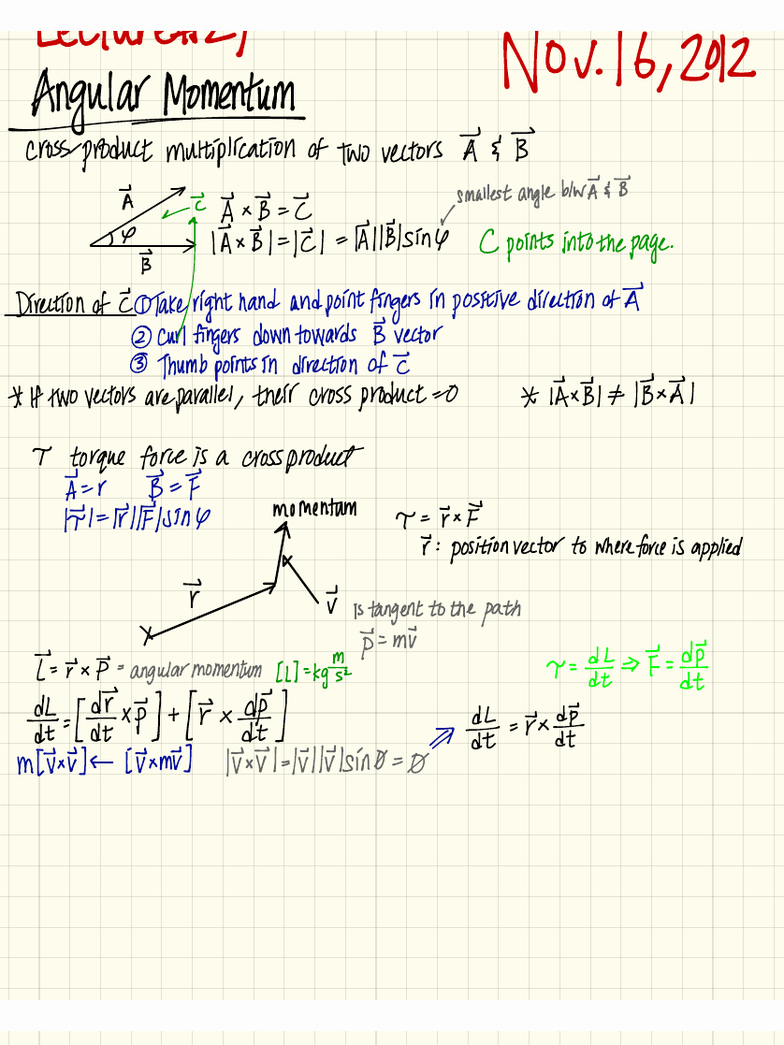 Lecture#21
Nov. 16, 2012
Angular Momentum
cross product multiplication of two vectors A⃗ & B⃗
smallest angle b/w A⃗ & B⃗
A⃗
C⃗
A⃗ × B⃗ = C⃗
φ
|A⃗ × B⃗| = |C⃗| = |A⃗||B⃗|sinφ
C points into the page.
B⃗
Direction of C⃗ ① Take right hand and point fingers in positive direction of A⃗
② curl fingers down towards B⃗ vector
③ Thumb points in direction of C⃗
* If two vectors are parallel, their cross product =0
* |A⃗×B⃗| ≠ |B⃗×A⃗|
τ torque force is a cross product
A⃗ = r B⃗ = F⃗
|τ⃗| = |r⃗||F⃗|sinφ
momentum
τ = r⃗ × F⃗
r⃗ : position vector to where force is applied
r⃗
v⃗ is tangent to the path
p⃗ = mv⃗
L⃗ = r⃗ × P⃗ = angular momentum [L] = kg m/s²
τ = dL/dt ⇒ F⃗ = dp⃗/dt
dL/dt = [dr⃗/dt × p⃗] + [r⃗ × dp⃗/dt]
⇒ dL/dt = r⃗ × dp⃗/dt
m[v⃗×v⃗] ← [v⃗×mv⃗] |v⃗×v⃗| = |v⃗||v⃗|sin0 = 0